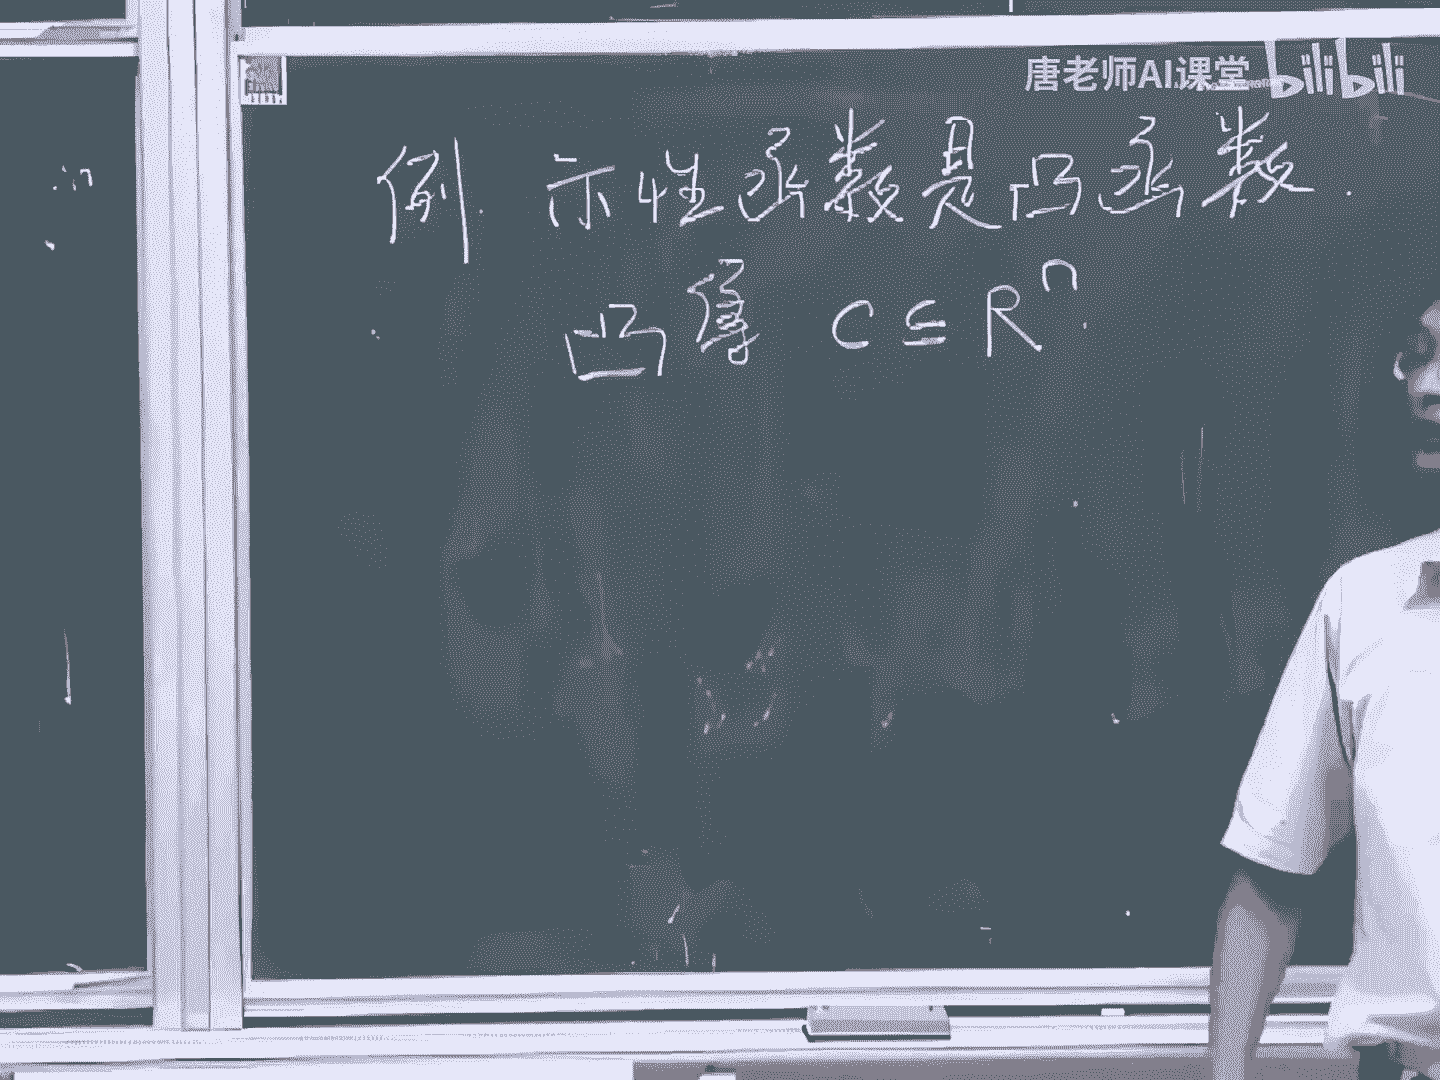 唐老师AI课堂 bilibili
例. 示性函数是凸函数.
凸集 C ⊆ Rⁿ